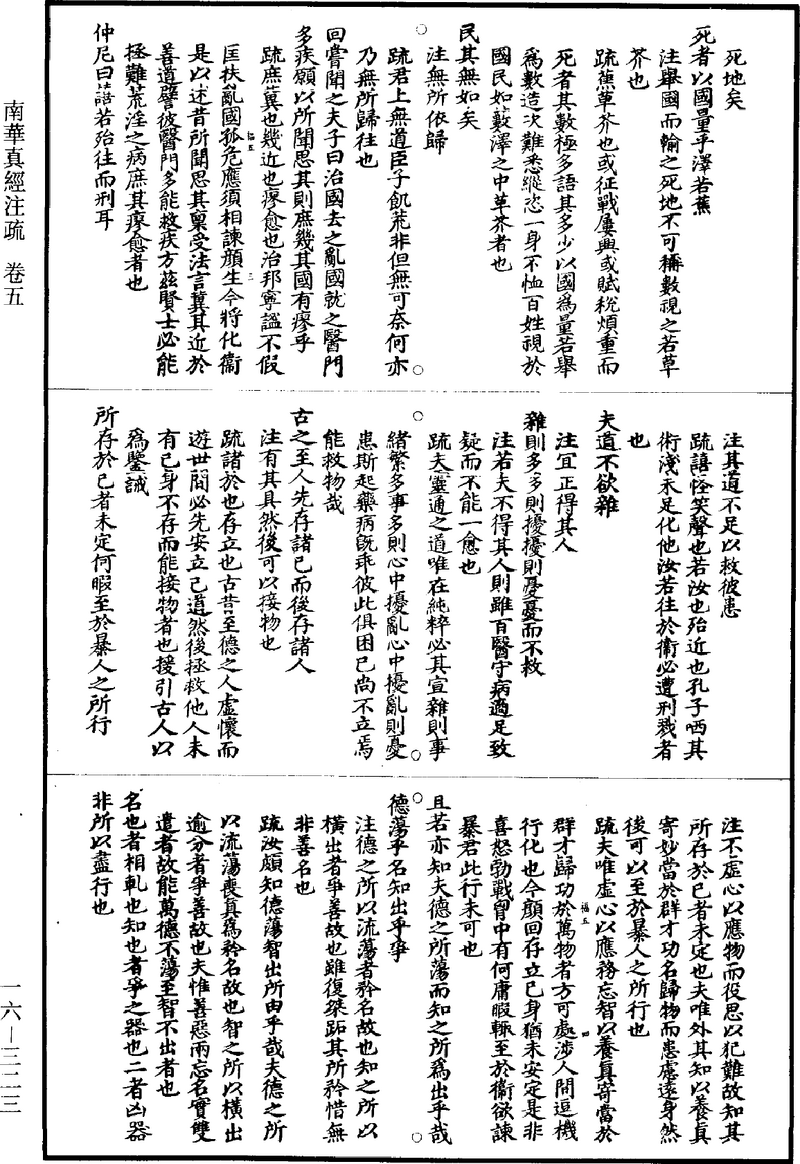 死地矣
死者以國量乎澤若蕉
注舉國而輸之死地不可稱數視之若草
芥也
疏蕉草芥也或征戰屢興或賦稅煩重而
死者其數極多語其多少以國為量若舉
為數造次難悉縱恣一身不恤百姓視於
國民如藪澤之中草芥者也
民其無如矣
注無所依歸
疏君上無道臣子飢荒非但無可奈何亦
乃無所歸往也
回嘗聞之夫子曰治國去之亂國就之醫門
多疾願以所聞思其則庶幾其國有瘳乎
疏庶冀也幾近也瘳愈也治邦寧謐不假
匡扶亂國孤危應須相諫顏生今將化衞
是以述昔所聞思其稟受法言冀其近於
善道譬彼醫門多能救疾方茲賢士必能
拯難荒淫之病庶其瘳愈者也
仲尼曰譆若殆往而刑耳
注其道不足以救彼患
疏譆怪笑聲也若汝也殆近也孔子哂其
術淺未足化他汝若往於衞必遭刑戮者
也
夫道不欲雜
注宜正得其人
雜則多多則擾擾則憂憂而不救
注若夫不得其人則雖百醫守病適足致
疑而不能一愈也
疏夫靈通之道唯在純粹必其宣雜則事
緒繁多事多則心中擾亂心中擾亂則憂
患斯起藥病既乖彼此俱困已尚不立焉
能救物哉
古之至人先存諸已而後存諸人
注有其具然後可以接物也
疏諸於也存立也古昔至德之人虛懷而
遊世間必先安立己道然後拯救他人未
有己身不存而能接物者也援引古人以
為鑒誡
所存於已者未定何暇至於暴人之所行
注不虛心以應物而役思以犯難故知其
所存於已者未定也夫唯外其知以養真
寄妙當於群才功名歸物而患慮遠身然
後可以至於暴人之所行也
疏夫唯虛心以應務忘智以養真寄當於
群才歸功於萬物者方可處涉人間逗機
行化也今顏回存立已身猶未安定是非
喜怒勃戰胷中有何庸暇輒至於衞欲諫
暴君此行未可也
且若亦知夫德之所蕩而知之所為出乎哉
德蕩乎名知出乎爭
注德之所以流蕩者矜名故也知之所以
橫出者爭善故也雖復桀跖其所矜惜無
非善名也
疏汝頗知德蕩智出所由乎哉夫德之所
以流蕩喪真為矜名故也智之所以橫出
逾分者爭善故也夫惟善惡兩忘名實雙
遣者故能萬德不蕩至智不出者也
名也者相軋也知也者爭之器也二者凶器
非所以盡行也
南華真經注疏 卷五
一六—三二三